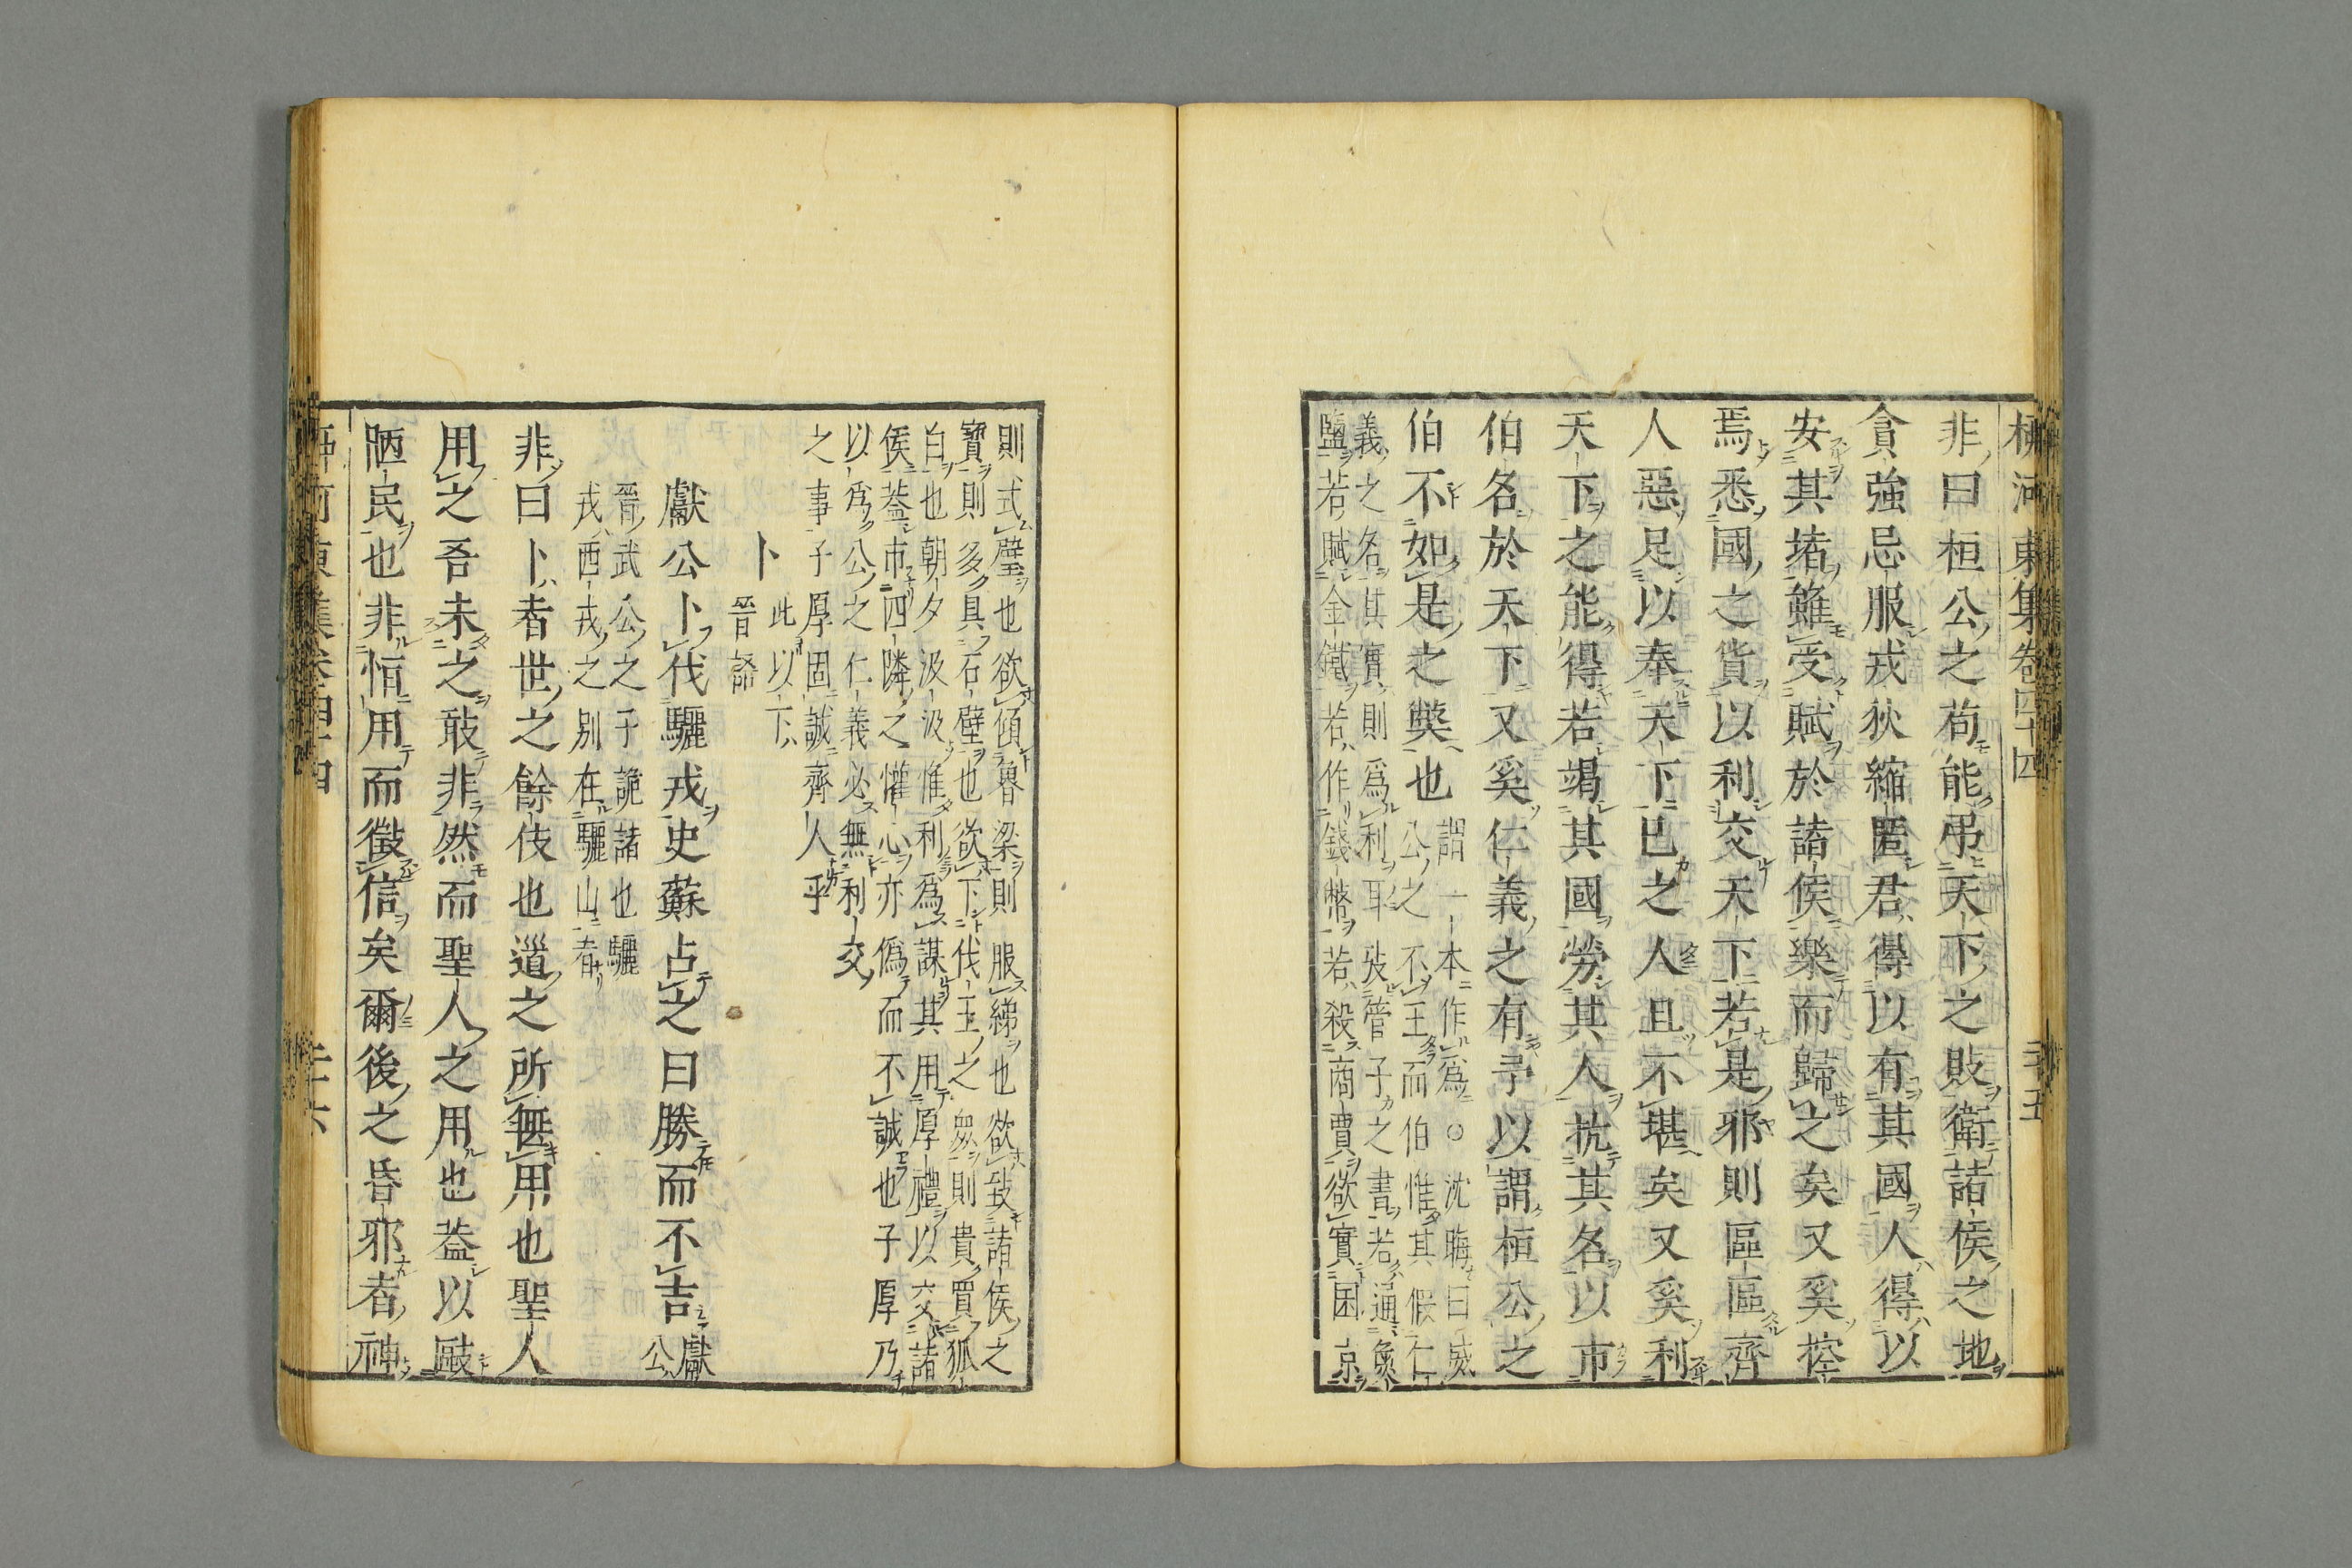 柳河東集卷四十四 二十五
非曰桓公之苟能弔天下之敗衛諸侯之地
貪強忌服戎狄縮匿君得以有其國人得以
安其堵雖受賦於諸侯樂而歸之矣又奚控
焉悉國之貨以利交天下若是邪則區區齊
人惡足以奉天下已之人且不堪矣又奚利
天下之能得若竭其國勞其人抗其名以市
伯名於天下又奚仁義之有予以謂桓公之
伯不如是之獘也
謂一本作爲○沈晦曰威
公之不王而伯惟其假仁
義之名其實則爲利耳攷管子之書若通魚
鹽若賦金鐵若作錢幣若殺商賈欲實囷京
則式璧也欲傾魯梁則服綈也欲致諸侯之
寶則多具石璧也欲下伐王之衆則貴買狐
白也朝夕汲汲惟利爲謀其用厚禮以交諸
侯葢市四隣之懽心亦僞而不誠也子厚乃
以爲公之仁義必無利交
之事子厚固誠齊人乎
卜
此以下
晉語
獻公卜伐驪戎史蘇占之曰勝而不吉
獻
公
晉武公之子詭諸也驪
戎西戎之别在驪山者
非曰卜者世之餘伎也道之所無用也聖人
用之吾未之敢非然而聖人之用也葢以敺
陋民也非恒用而徵信矣爾後之昏邪者神
柳河東集卷四十四 二十六